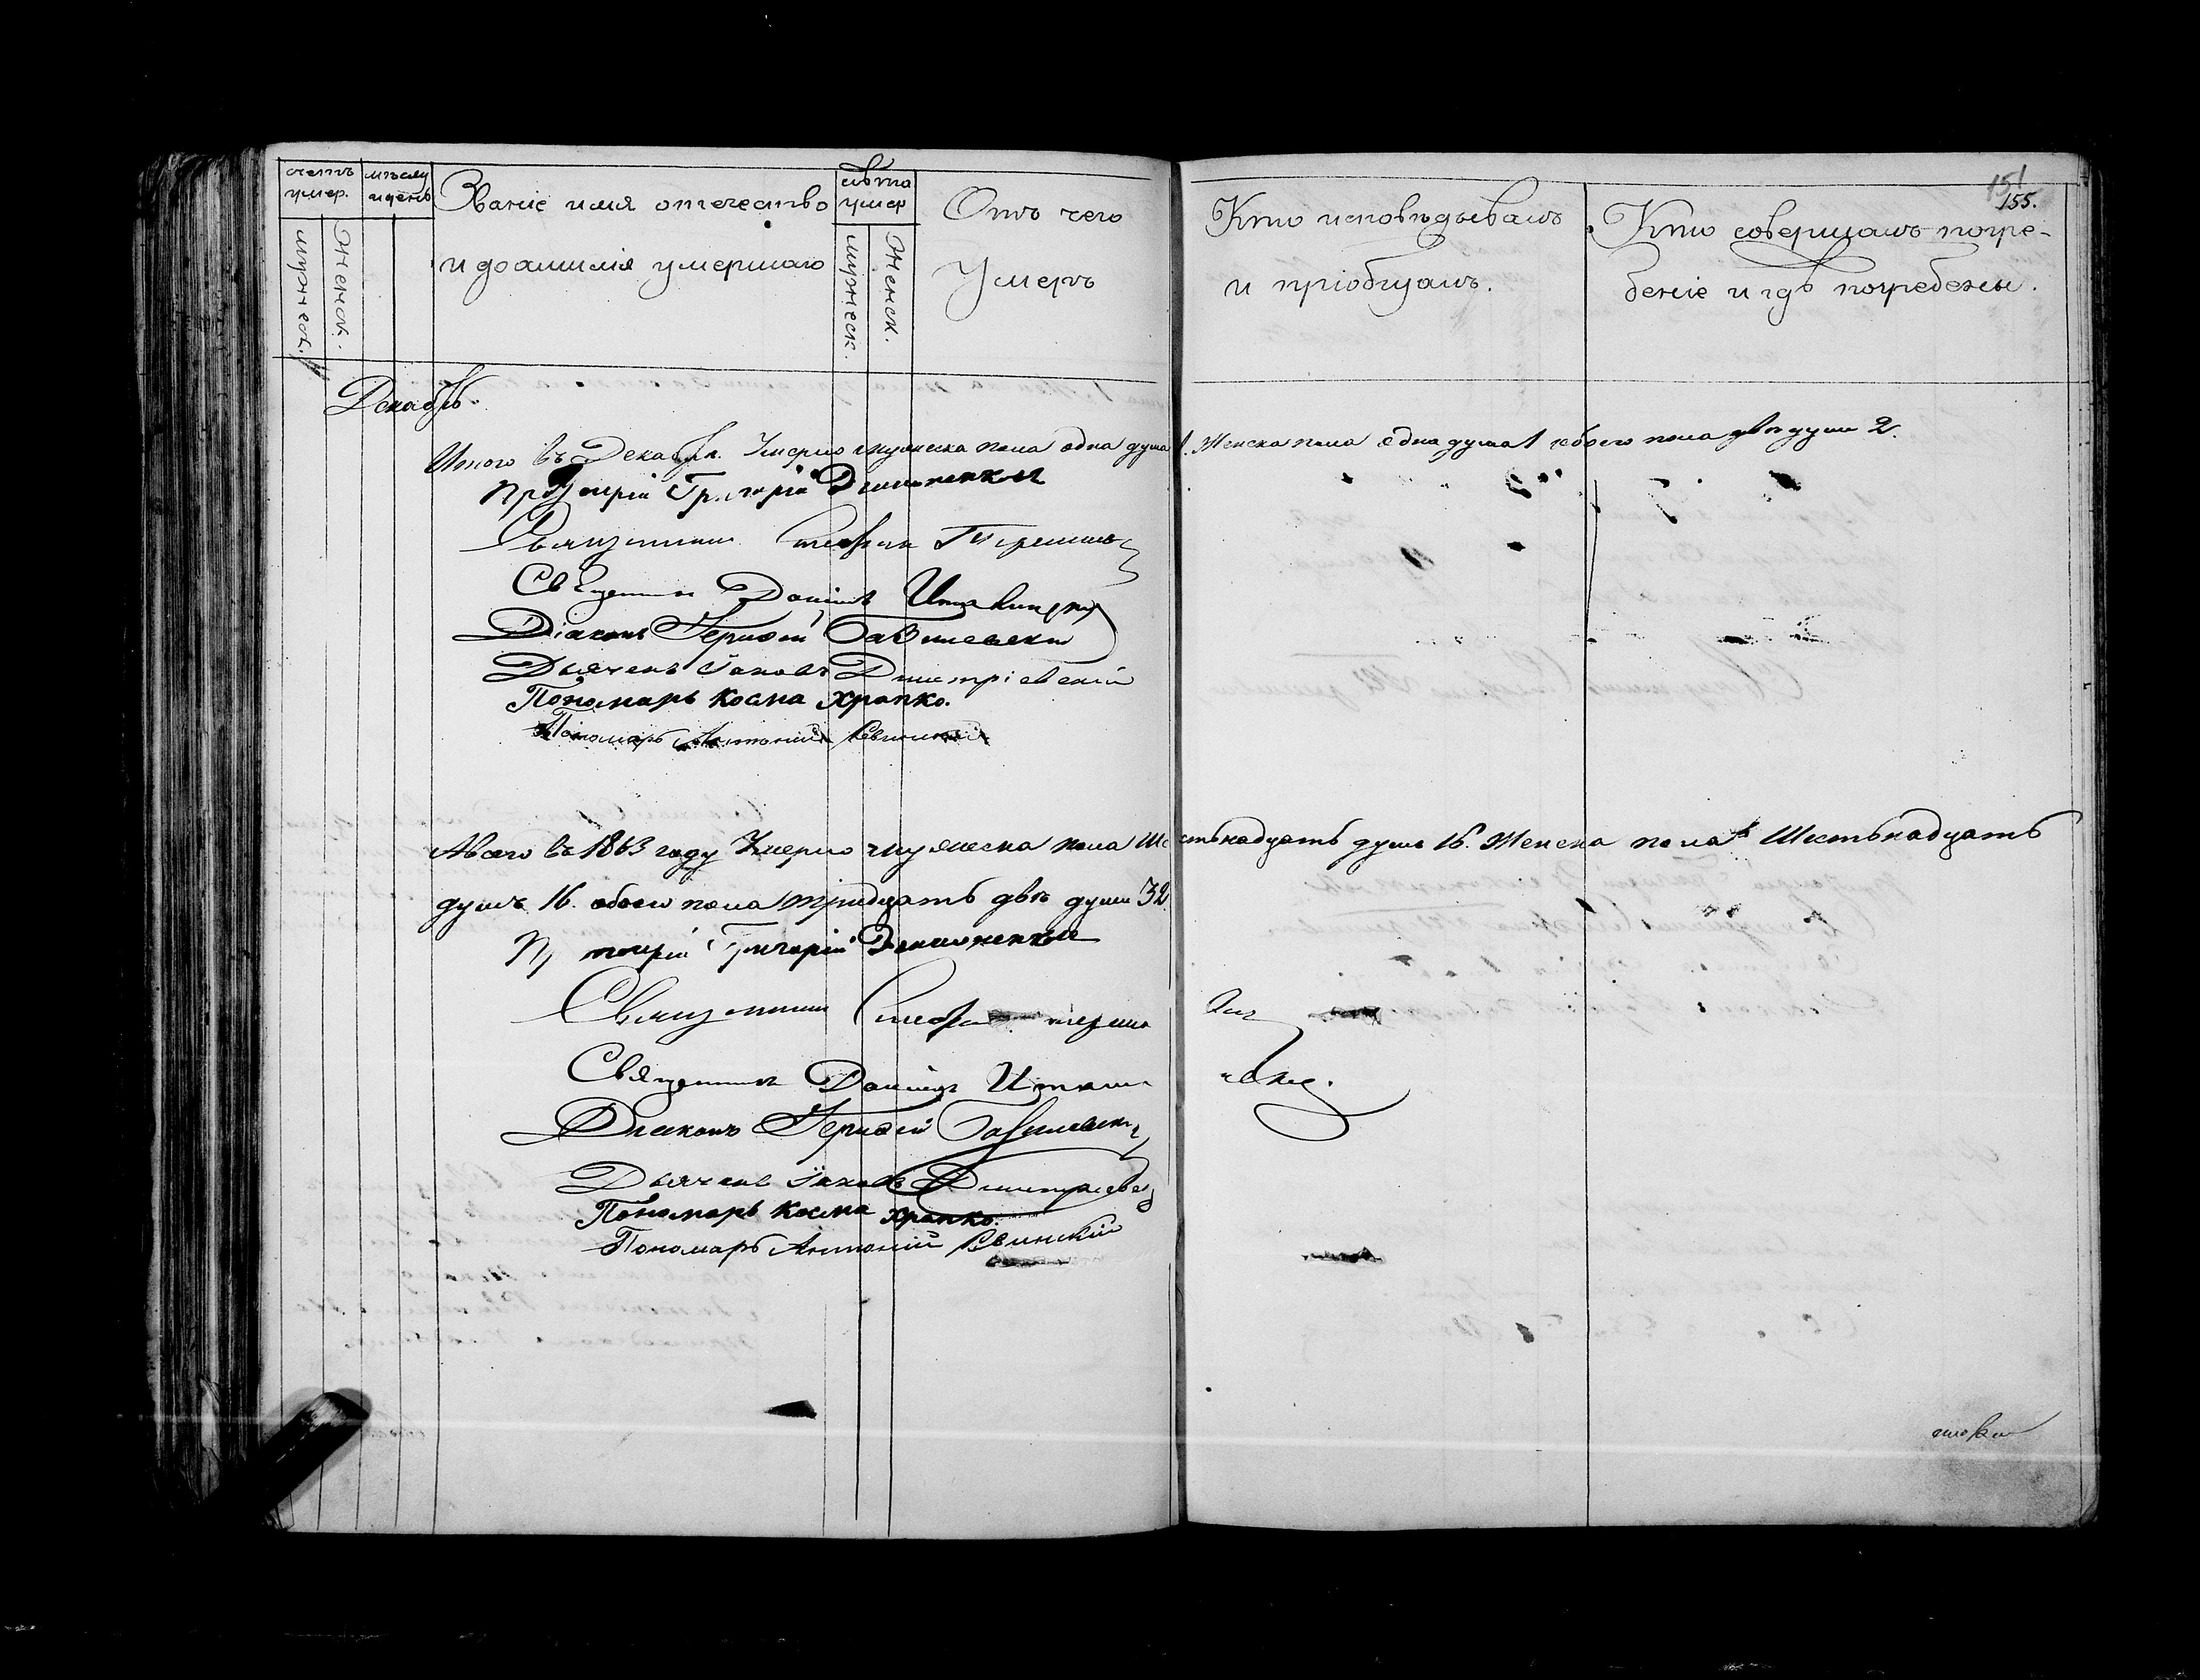 151
155.
счетъ умер.
мужеск.
женск.
мѣсяцъ и день
Званіе имя отечество
и фамилія умершаго
лѣта умер
мужеск.
женск.
Отъ чего
Умеръ
Кто исповѣдывалъ
и пріобщалъ.
Кто совершалъ погре-
беніе и гдѣ погребены.
Декабрь
Итого въ Декабрѣ Умерло мужеска пола одна душа 1. Женска пола одна душа 1 обоего пола двѣ души 2.
Григорій
Священникъ Стефан
Священникъ Даніилъ
Діаконъ
Дьячекъ Іаковъ Дмитріевскій
Пономарь Косма Храпко.
Пономарь Антоній Ревинскій
А всего въ 1863 году Умерло мужеска пола Шестьнадцать душъ 16. Женска пола Шестьнадцать
душъ 16. обоего пола тридцать двѣ души 32.
Григорій
Священникъ
Священникъ Даніилъ
Діаконъ
Дьячекъ Іаковъ Дмитріевскій
Пономарь Косма Храпко.
Пономарь Антоній Ревинскій